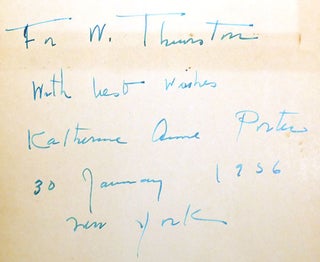 For W. Thurston
With best wishes
Katherine Anne Porter
30 January 1956
New York